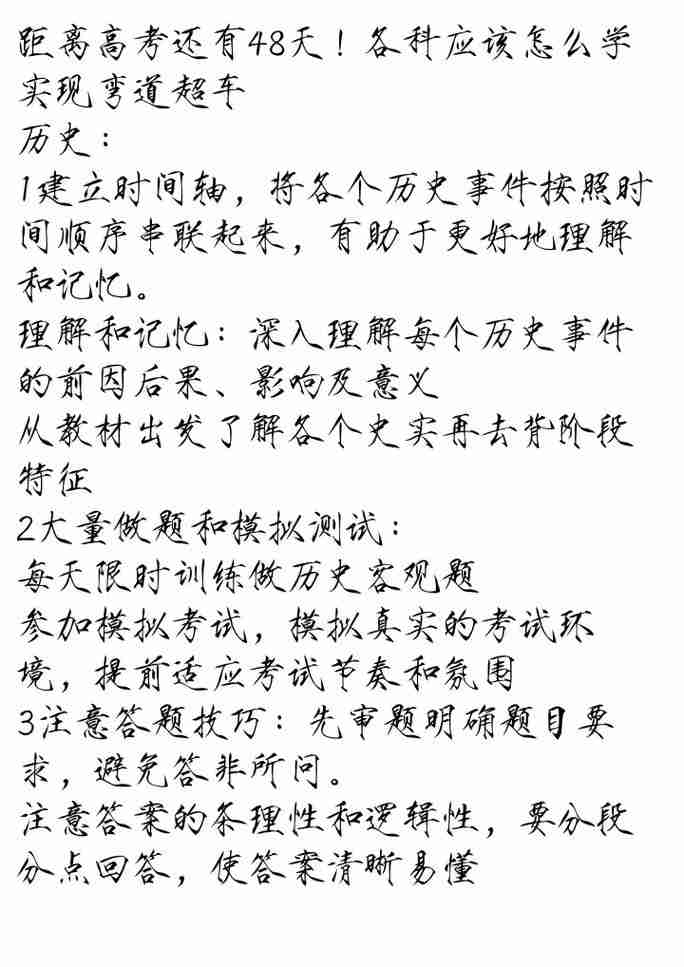 距离高考还有48天！各科应该怎么学
实现弯道超车
历史：
1建立时间轴，将各个历史事件按照时
间顺序串联起来，有助于更好地理解
和记忆。
理解和记忆：深入理解每个历史事件
的前因后果、影响及意义
从教材出发了解各个史实再去背阶段
特征
2大量做题和模拟测试：
每天限时训练做历史客观题
参加模拟考试，模拟真实的考试环
境，提前适应考试节奏和氛围
3注意答题技巧：先审题明确题目要
求，避免答非所问。
注意答案的条理性和逻辑性，要分段
分点回答，使答案清晰易懂